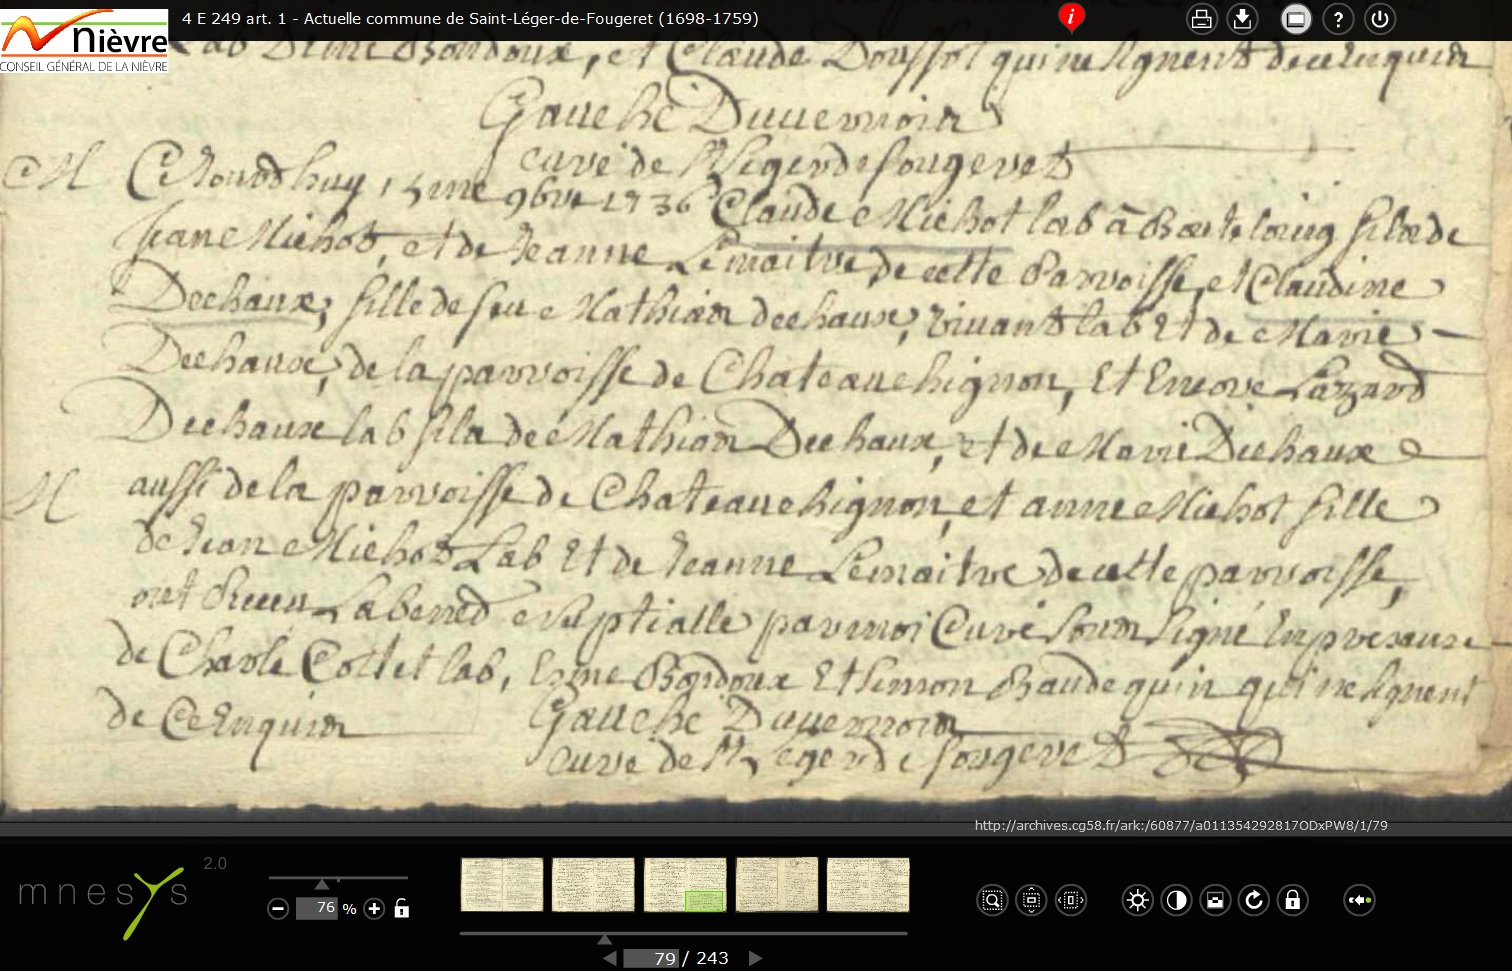 4 E 249 art. 1 - Actuelle commune de Saint-Léger-de-Fougeret (1698-1759)
i
?
Nièvre
CONSEIL GÉNÉRAL DE LA NIÈVRE
Lab Bondoux, et Claude Doussot qui ne signent de ce enquis
Gauché Duvernoin
curé de St Leger de fougeret
M Ce Jourdhuy 9bre 1736 Claude Michot lab à fils de
Jean Michot, et de Jeanne Lemaitre de cette Parroisse, et Claudine
Dechaux, fille de feu Mathias dechaux, vivant lab Et de Marie
Dechaux, de la parroisse de Chateauchignon, Et Encore Lazard
Dechaux lab fils de Mathias Dechaux, et de Marie Dechaux
M aussi de la parroisse de Chateauchignon, et anne Michot fille
de Jean Michot Lab Et de Jeanne Lemaitre de cette parroisse,
ont Receu La bened Nuptialle par moi Curé soussigné En presence
de Charle Cottet lab, Bondoux Et Simon Baudequin qui ne signent
de Ce Enquis Gauché Duvernoin
curé de St Leger de fougeret
http://archives.cg58.fr/ark:/60877/a011354292817ODxPW8/1/79
mnesys 2.0
76 %
79 / 243